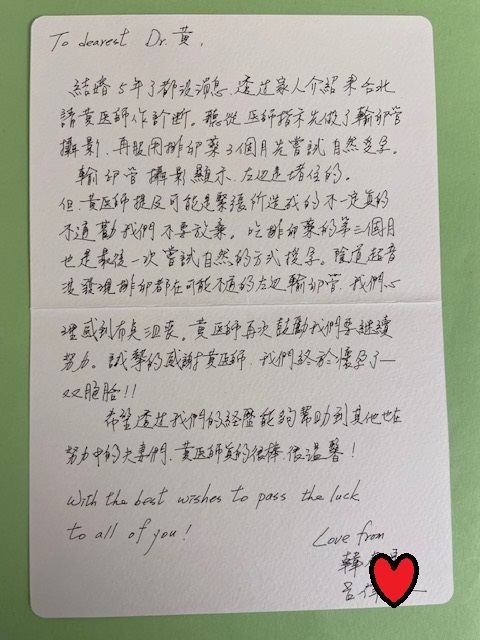 To dearest Dr. 黃,
結婚5年了都沒消息,透過家人介紹來台北
請黃醫師作診斷。聽從醫師指示先做了輸卵管
攝影,再服用排卵藥3個月先嘗試自然受孕。
輸卵管攝影顯示,左边是堵住的。
但黃醫師提及可能是緊張所造成的不一定真的
不通勸我們不要放棄。吃排卵藥的第三個月
也是最後一次嘗試自然的方式受孕。陰道超音
波發現排卵都在可能不通的左边輸卵管,我們心
理感到有点沮喪。黃醫師再次鼓勵我們要繼續
努力。誠摯的感謝黃醫師,我們終於懷孕了—
双胞胎!!
希望透过我們的経歷能夠幫助到其他也在
努力中的夫妻們,黃醫師真的很棒,很溫馨!
With the best wishes to pass the luck
to all of you!
Love from
韓
呂